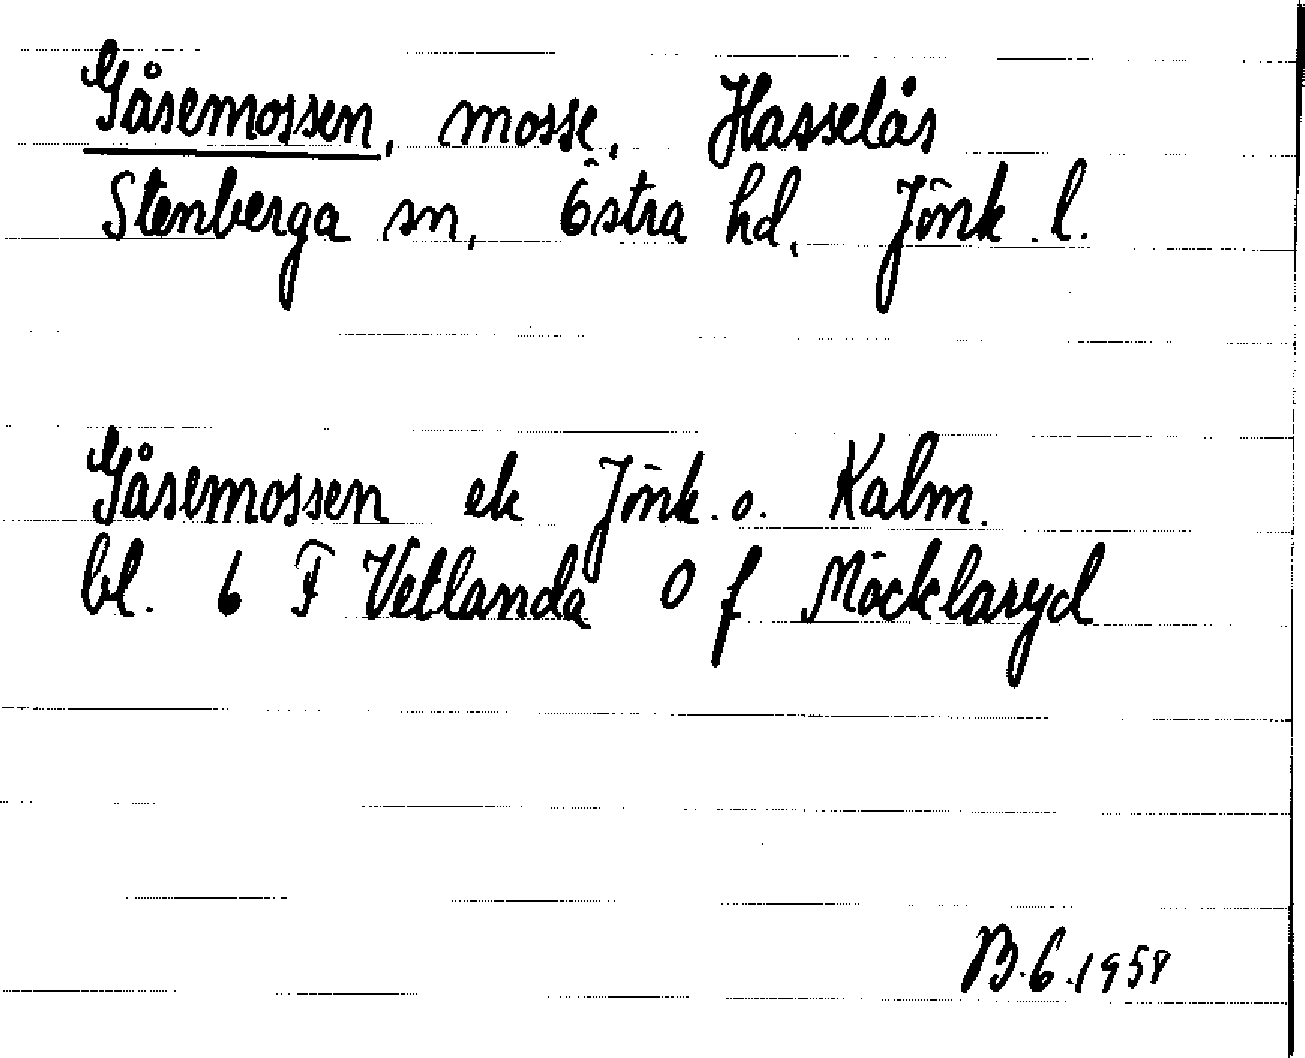 Gåsemossen, mosse, Hasselås
Stenberga sn, Östra hd, Jönk. l.
Gåsemossen ek Jönk. o. Kalm.
bl. 6 F Vetlanda O f Möcklaryd
B. 6. 1958